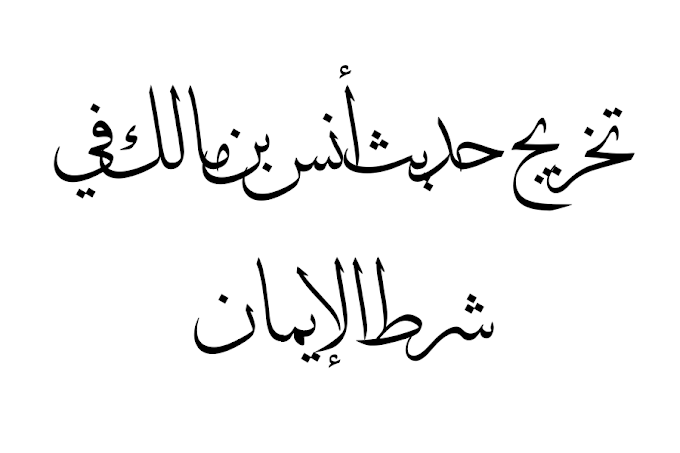 تخريج حديث أنس بن مالك في
شرط الإيمان